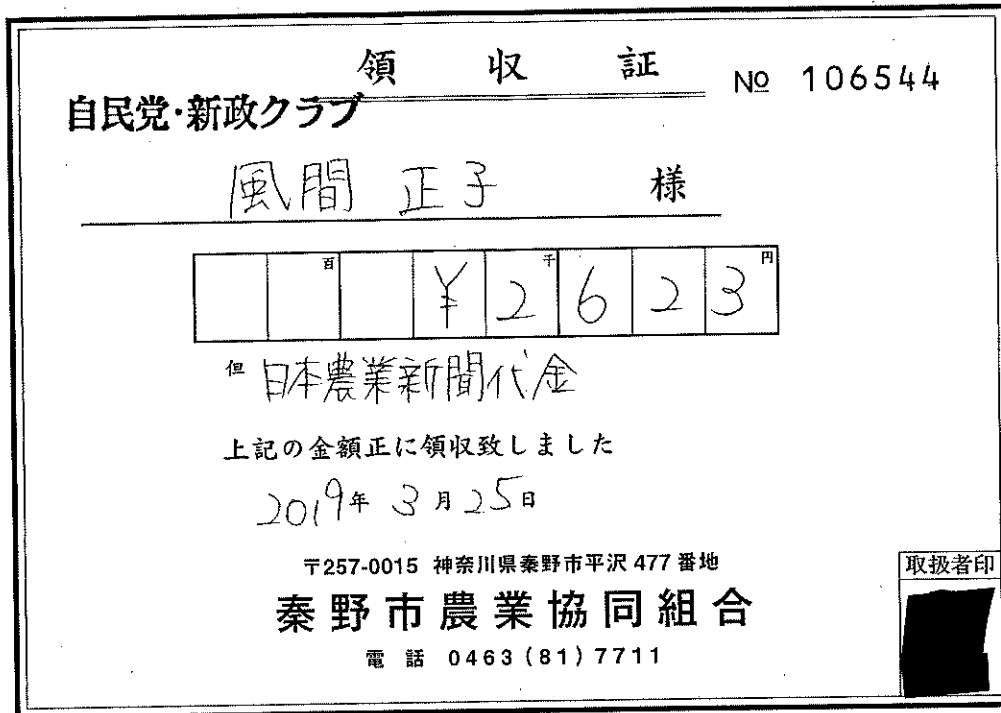 領収証
№ 106544
自民党・新政クラブ
風間 正子 様
百 千 円
¥2623
但 日本農業新聞代金
上記の金額正に領収致しました
2019年 3月25日
〒257-0015 神奈川県秦野市平沢477番地
取扱者印
秦野市農業協同組合
電話 0463(81)7711